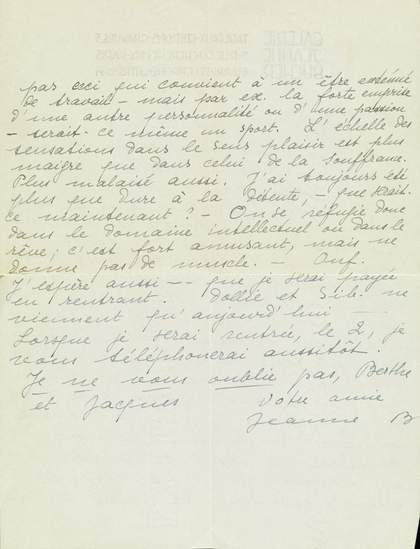 par ceci qui convient à un être exténué
de travail — mais par ex. la forte emprise
d'une autre personnalité ou d'une passion
— serait-ce même un sport. L'échelle des
sensations dans le sens plaisir est plus
maigre que dans celui de la souffrance.
Plus malaisé aussi. J'ai toujours été
plus que dure à la détente, — que serait-
ce maintenant ? — On se réfugie donc
dans le domaine intellectuel ou dans le
rêve ; c'est fort amusant, mais ne
donne pas de muscle. — Ouf.
J'espère aussi — que je serai payée
en rentrant. Dollée et Sib. ne
viennent qu'aujourd'hui —
Lorsque je serai rentrée, le 2, je
vous téléphonerai aussitôt.
Je ne vous oublie pas, Berthe
et Jacques votre amie
Jeanne B